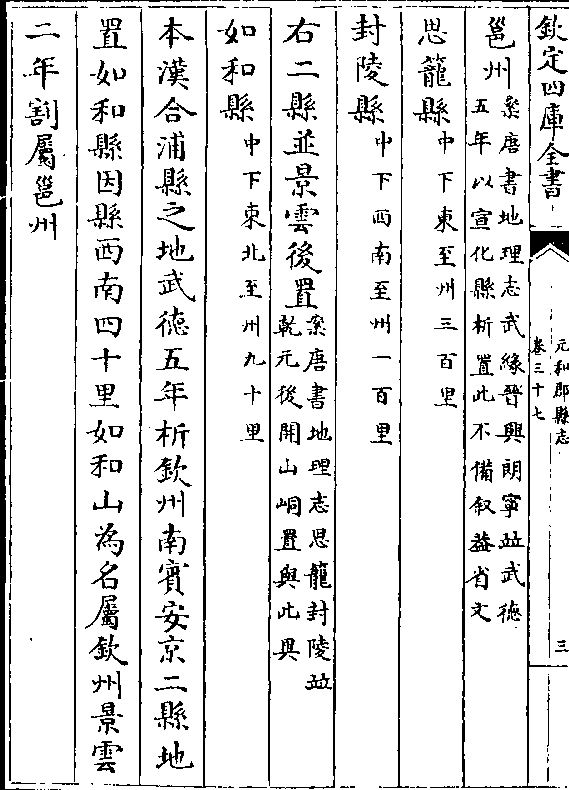 欽定四庫全書
元和郡縣志
卷三十七
三
邕州
案唐書地理志武緣晉興朗寧並武德
五年以宣化縣析置此不備叙蓋省文
思籠縣
中下東至州三百里
封陵縣
中下西南至州一百里
右二縣並景雲後置
案唐書地理志思籠封陵並
乾元後開山峒置與此異
如和縣
中下東北至州九十里
本漢合浦縣之地武德五年析欽州南賓安京二縣地
置如和縣因縣西南四十里如和山為名屬欽州景雲
二年割屬邕州